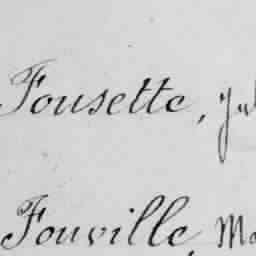 Fousette, Jul
Fouville, Ma